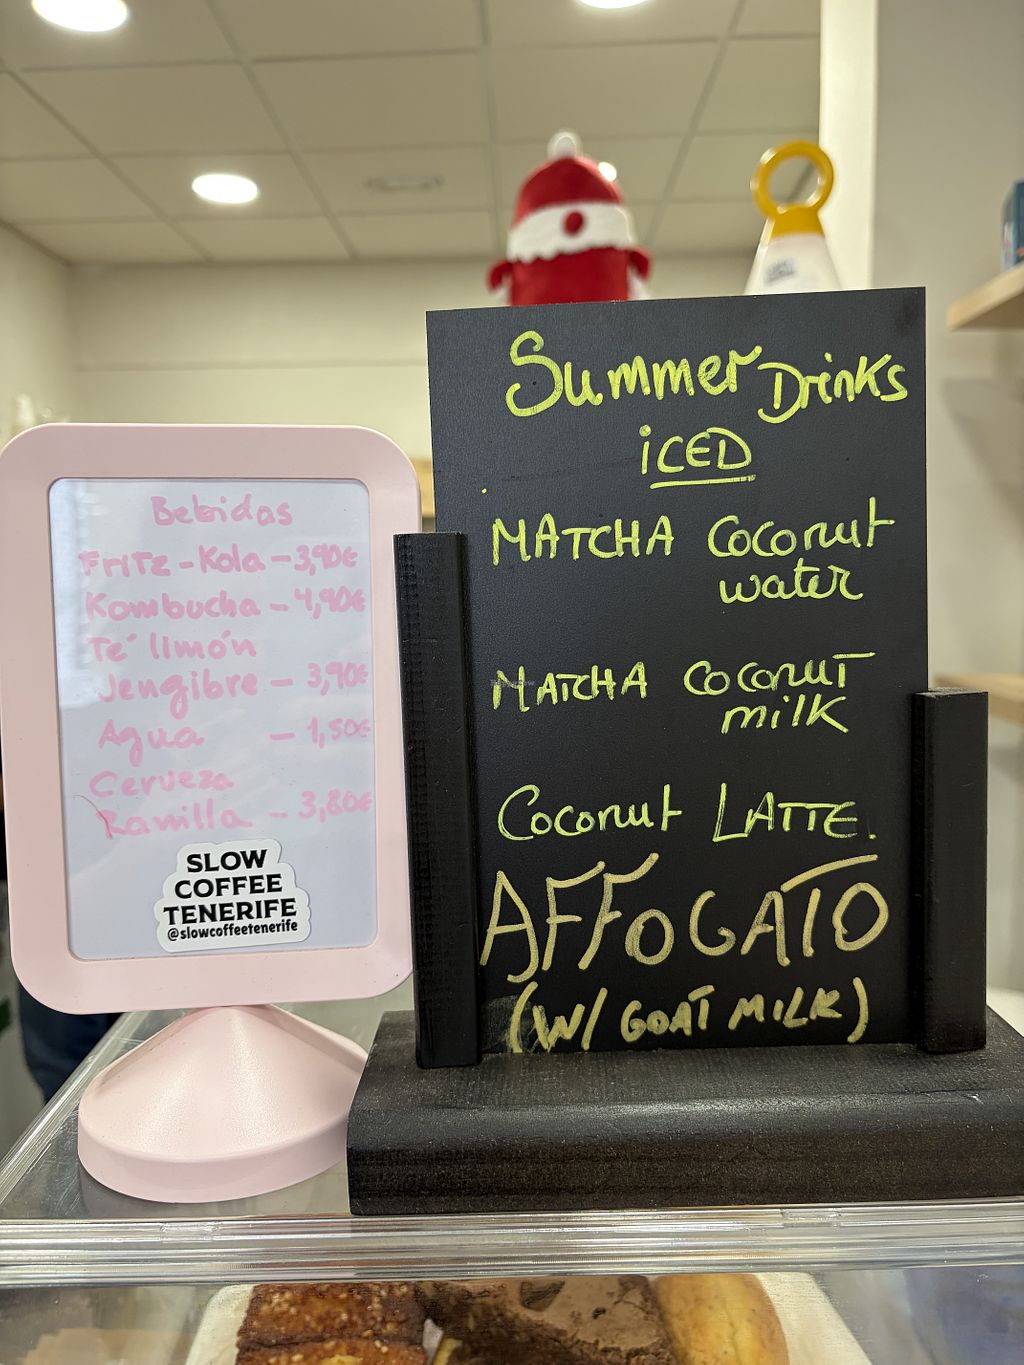 Bebidas
Fritz-Kola - 3,90€
Kombucha - 4,90€
Té limón
Jengibre - 3,90€
Agua - 1,50€
Cerveza
Ramilla - 3,80€
SLOW
COFFEE
TENERIFE
@slowcoffeetenerife
Summer Drinks
iCED
MATCHA Coconut
water
MATCHA Coconut
milk
Coconut LATTE.
AFFOGATO
(W/ GOAT MILK)